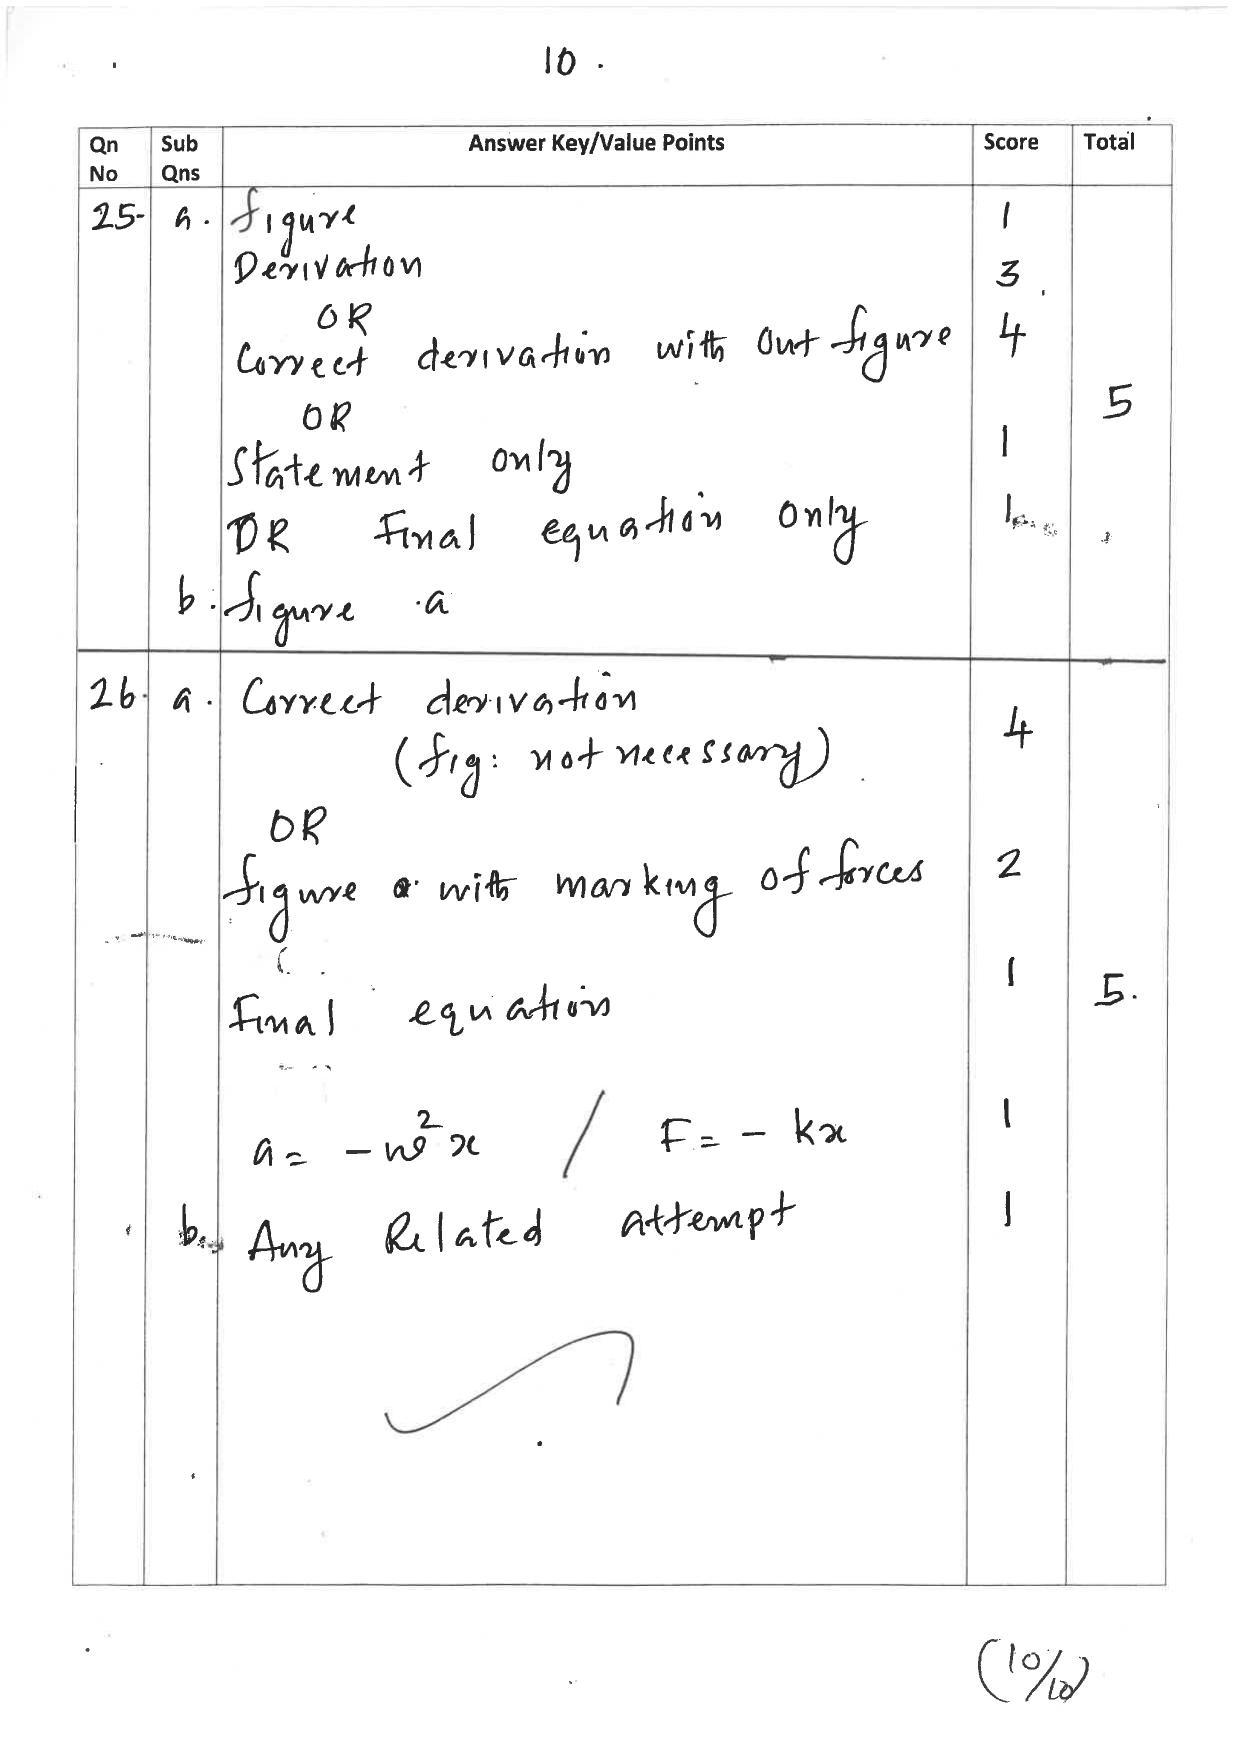 10 .
Qn No Sub Qns Answer Key/Value Points Score Total
25- a. figure 1
Derivation 3
OR
Correct derivation with out figure 4
OR 5
Statement only 1
OR Final equation only 1
b. figure a
26. a. Correct derivation 4
(fig: not necessary)
OR
figure with marking of forces 2
Final equation 1 5.
a = - ω² x / F = - kx 1
b. Any Related attempt 1
(10/10)